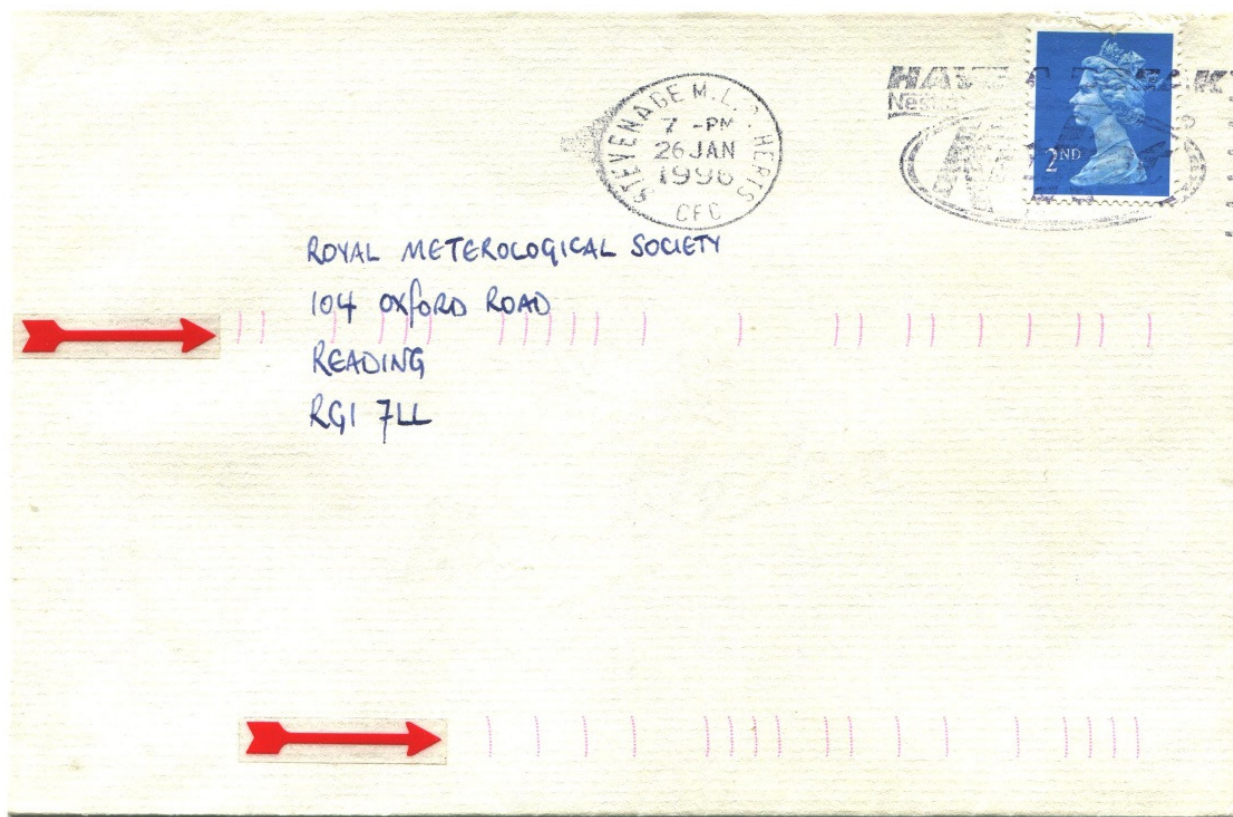 HAVE A BREAK
STEVENAGE M.L.O. HERTS
7 -PM
26 JAN
1996
CFC
2ND
ROYAL METEROLOGICAL SOCIETY
104 OXFORD ROAD
READING
RG1 7LL